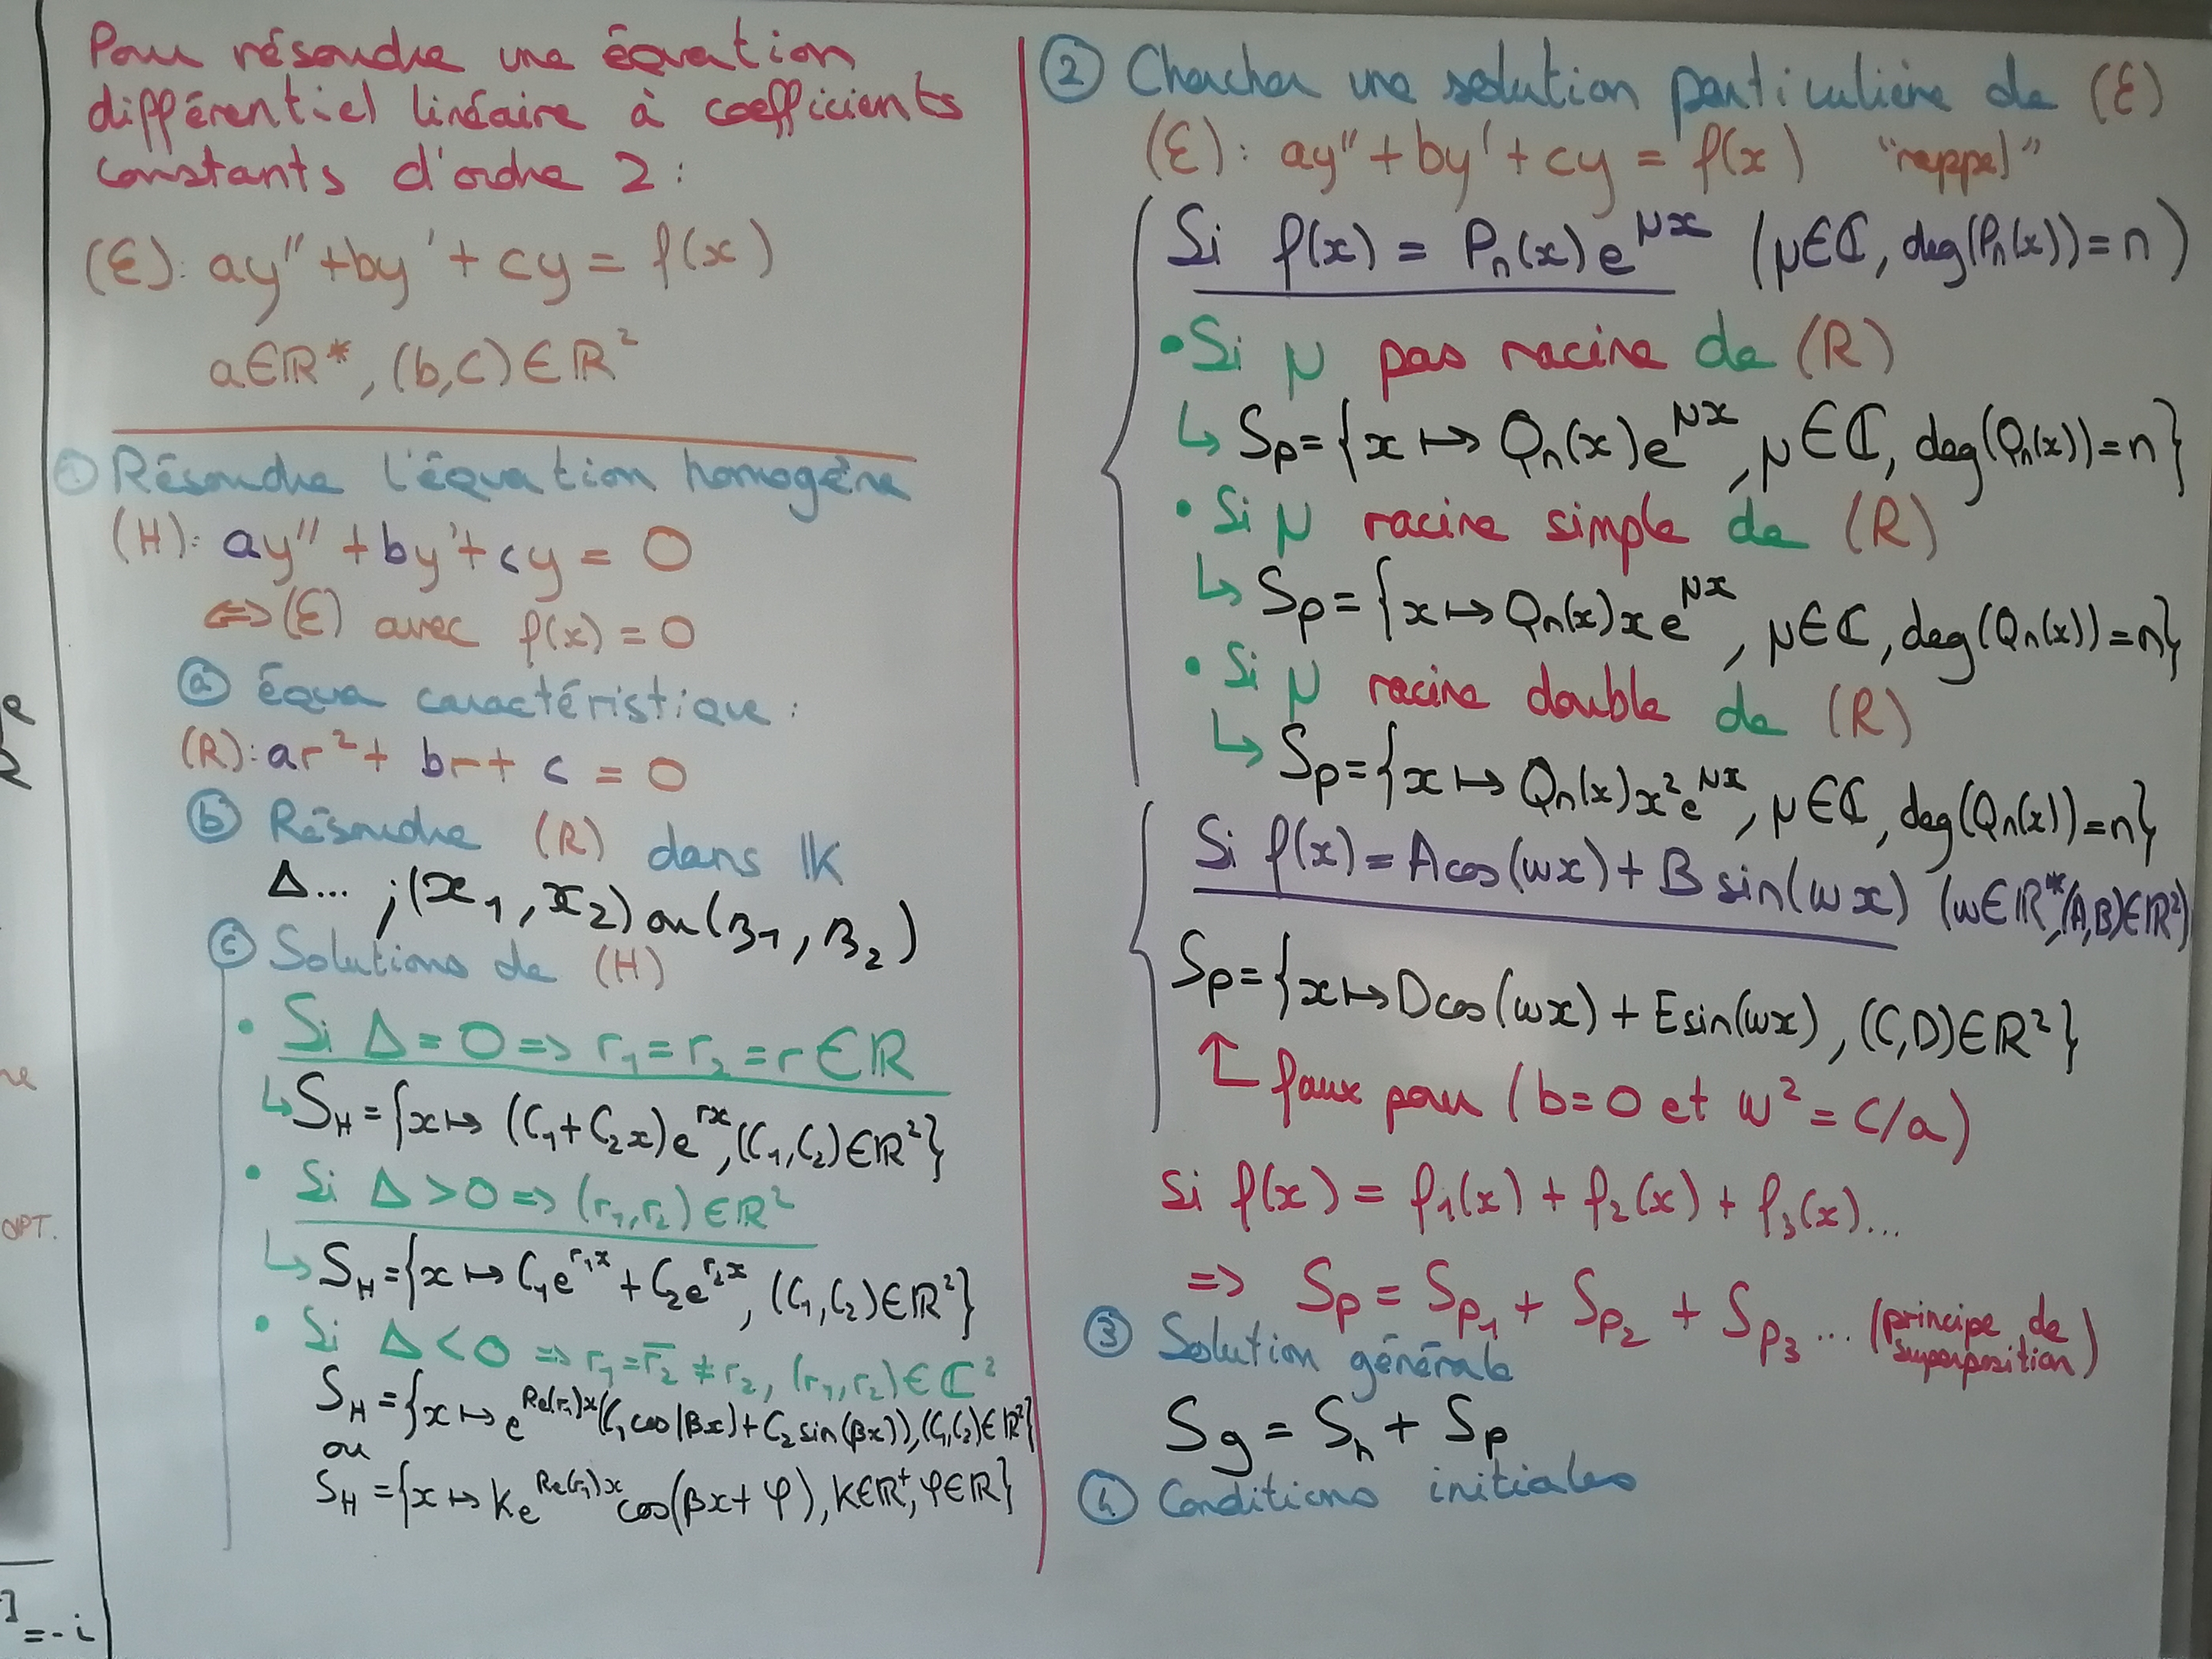 Pour résoudre une équation
différentiel linéaire à coefficients
constants d'ordre 2 :
(E): ay'' + by' + cy = f(x)
a∈ℝ*, (b,c)∈ℝ²
① Résoudre l'équation homogène
(H): ay'' + by' + cy = 0
⇔ (E) avec f(x) = 0
ⓐ équa caractéristique :
(R): ar² + br + c = 0
ⓑ Résoudre (R) dans 𝕂
Δ... ; (x₁, x₂) ou (z₁, z₂)
ⓒ Solutions de (H)
• Si Δ = 0 => r₁ = r₂ = r ∈ ℝ
↳ S_H = {x ↦ (C₁ + C₂x)e^{rx}, (C₁,C₂)∈ℝ²}
• Si Δ > 0 => (r₁,r₂) ∈ ℝ²
↳ S_H = {x ↦ C₁e^{r₁x} + C₂e^{r₂x}, (C₁,C₂)∈ℝ²}
• Si Δ < 0 => r₁ = r̅₂ ≠ r₂, (r₁,r₂)∈ℂ²
S_H = {x ↦ e^{Re(r₁)x}(C₁cos(βx) + C₂sin(βx)), (C₁,C₂)∈ℝ²}
ou
S_H = {x ↦ Ke^{Re(r₁)x}cos(βx + φ), K∈ℝ⁺, φ∈ℝ}
② Chercher une solution particulière de (E)
(E): ay'' + by' + cy = f(x) "rappel"
Si f(x) = Pₙ(x)e^{μx} (μ∈ℂ, deg(Pₙ(x)) = n)
• Si μ pas racine de (R)
↳ Sp = {x ↦ Qₙ(x)e^{μx}, μ∈ℂ, deg(Qₙ(x)) = n}
• Si μ racine simple de (R)
↳ Sp = {x ↦ Qₙ(x)xe^{μx}, μ∈ℂ, deg(Qₙ(x)) = n}
• Si μ racine double de (R)
↳ Sp = {x ↦ Qₙ(x)x²e^{μx}, μ∈ℂ, deg(Qₙ(x)) = n}
Si f(x) = Acos(ωx) + Bsin(ωx) (ω∈ℝ*, (A,B)∈ℝ²)
Sp = {x ↦ Dcos(ωx) + Esin(ωx), (C,D)∈ℝ²}
↑ faux pour (b=0 et ω² = c/a)
si f(x) = f₁(x) + f₂(x) + f₃(x)...
=> Sp = Sp₁ + Sp₂ + Sp₃ ... (principe de
superposition)
③ Solution générale
Sg = Sh + Sp
④ Conditions initiales
OPT.
= -i